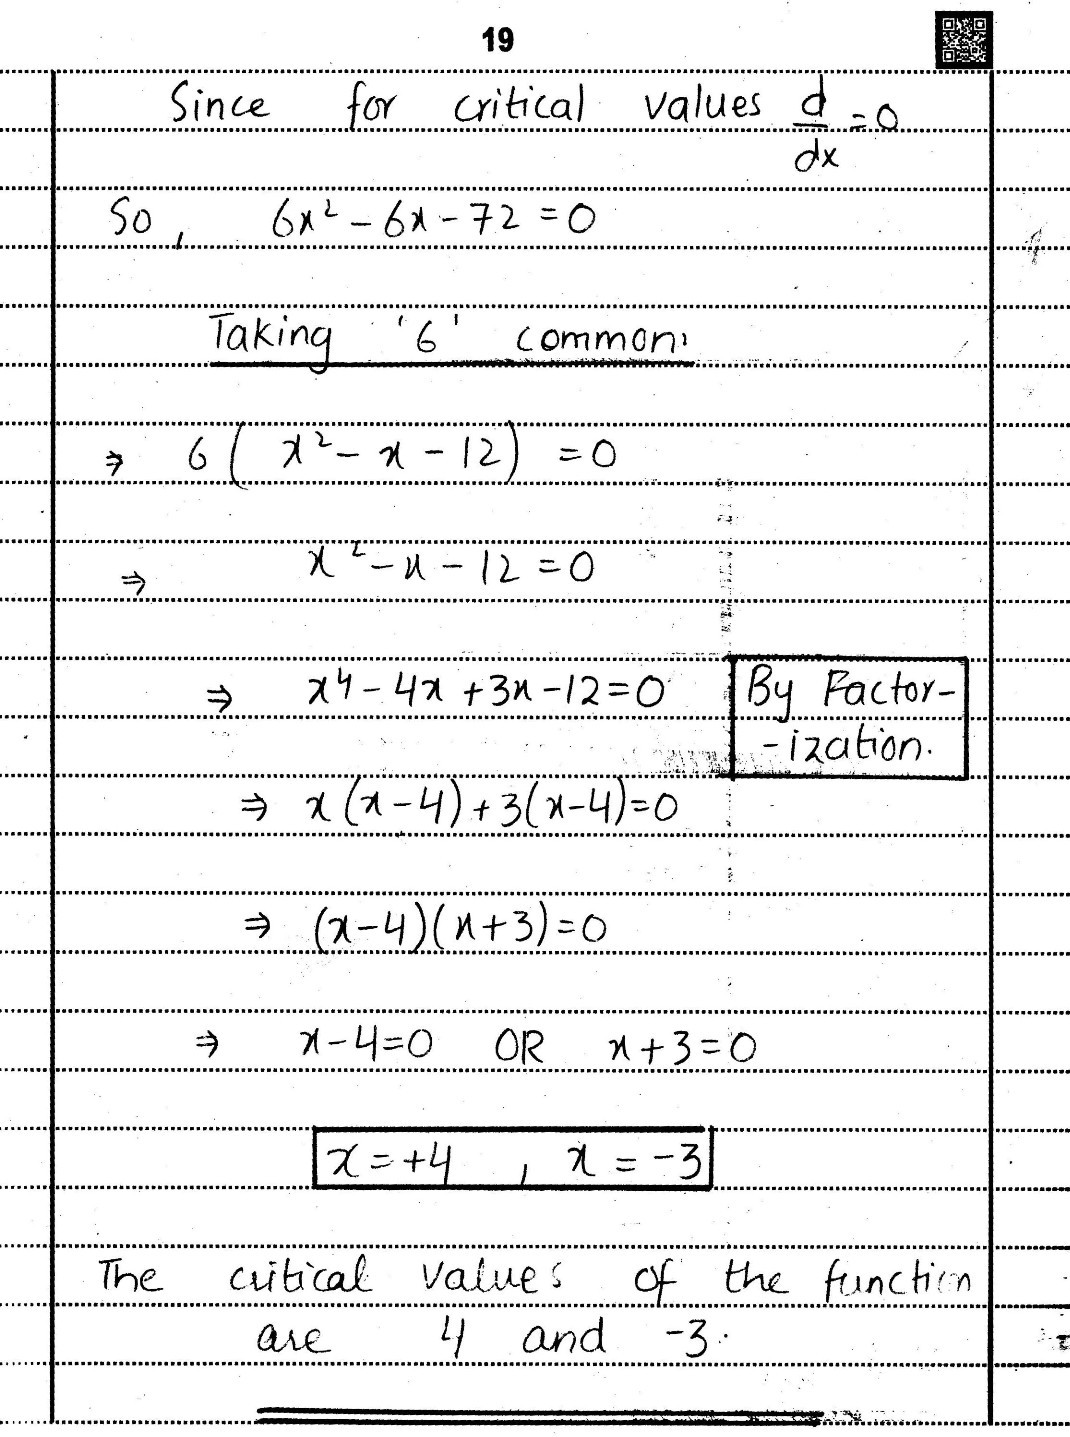 19
Since for critical values d/dx = 0
So, 6x² - 6x - 72 = 0
Taking '6' common:
⇒ 6( x² - x - 12) = 0
⇒ x² - x - 12 = 0
⇒ x4 - 4x + 3x - 12 = 0
By Factor-
-ization.
⇒ x(x-4) + 3(x-4) = 0
⇒ (x-4)(x+3) = 0
⇒ x-4=0 OR x+3=0
x = +4 , x = -3
The critical values of the function
are 4 and -3.